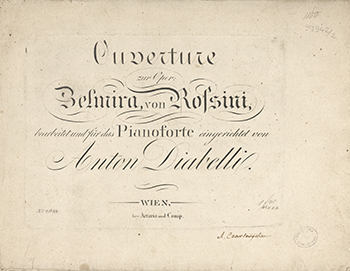 Ouverture
zur Oper:
Zelmira, von Rossini,
bearbeitet und für das Pianoforte eingerichtet von
Anton Diabelli.
WIEN,
bey Artaria und Comp.